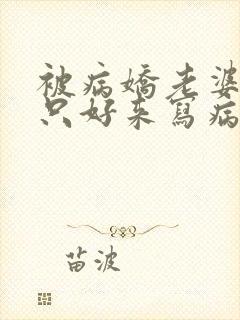 被病嬌老婆
只好来寫病
苗波